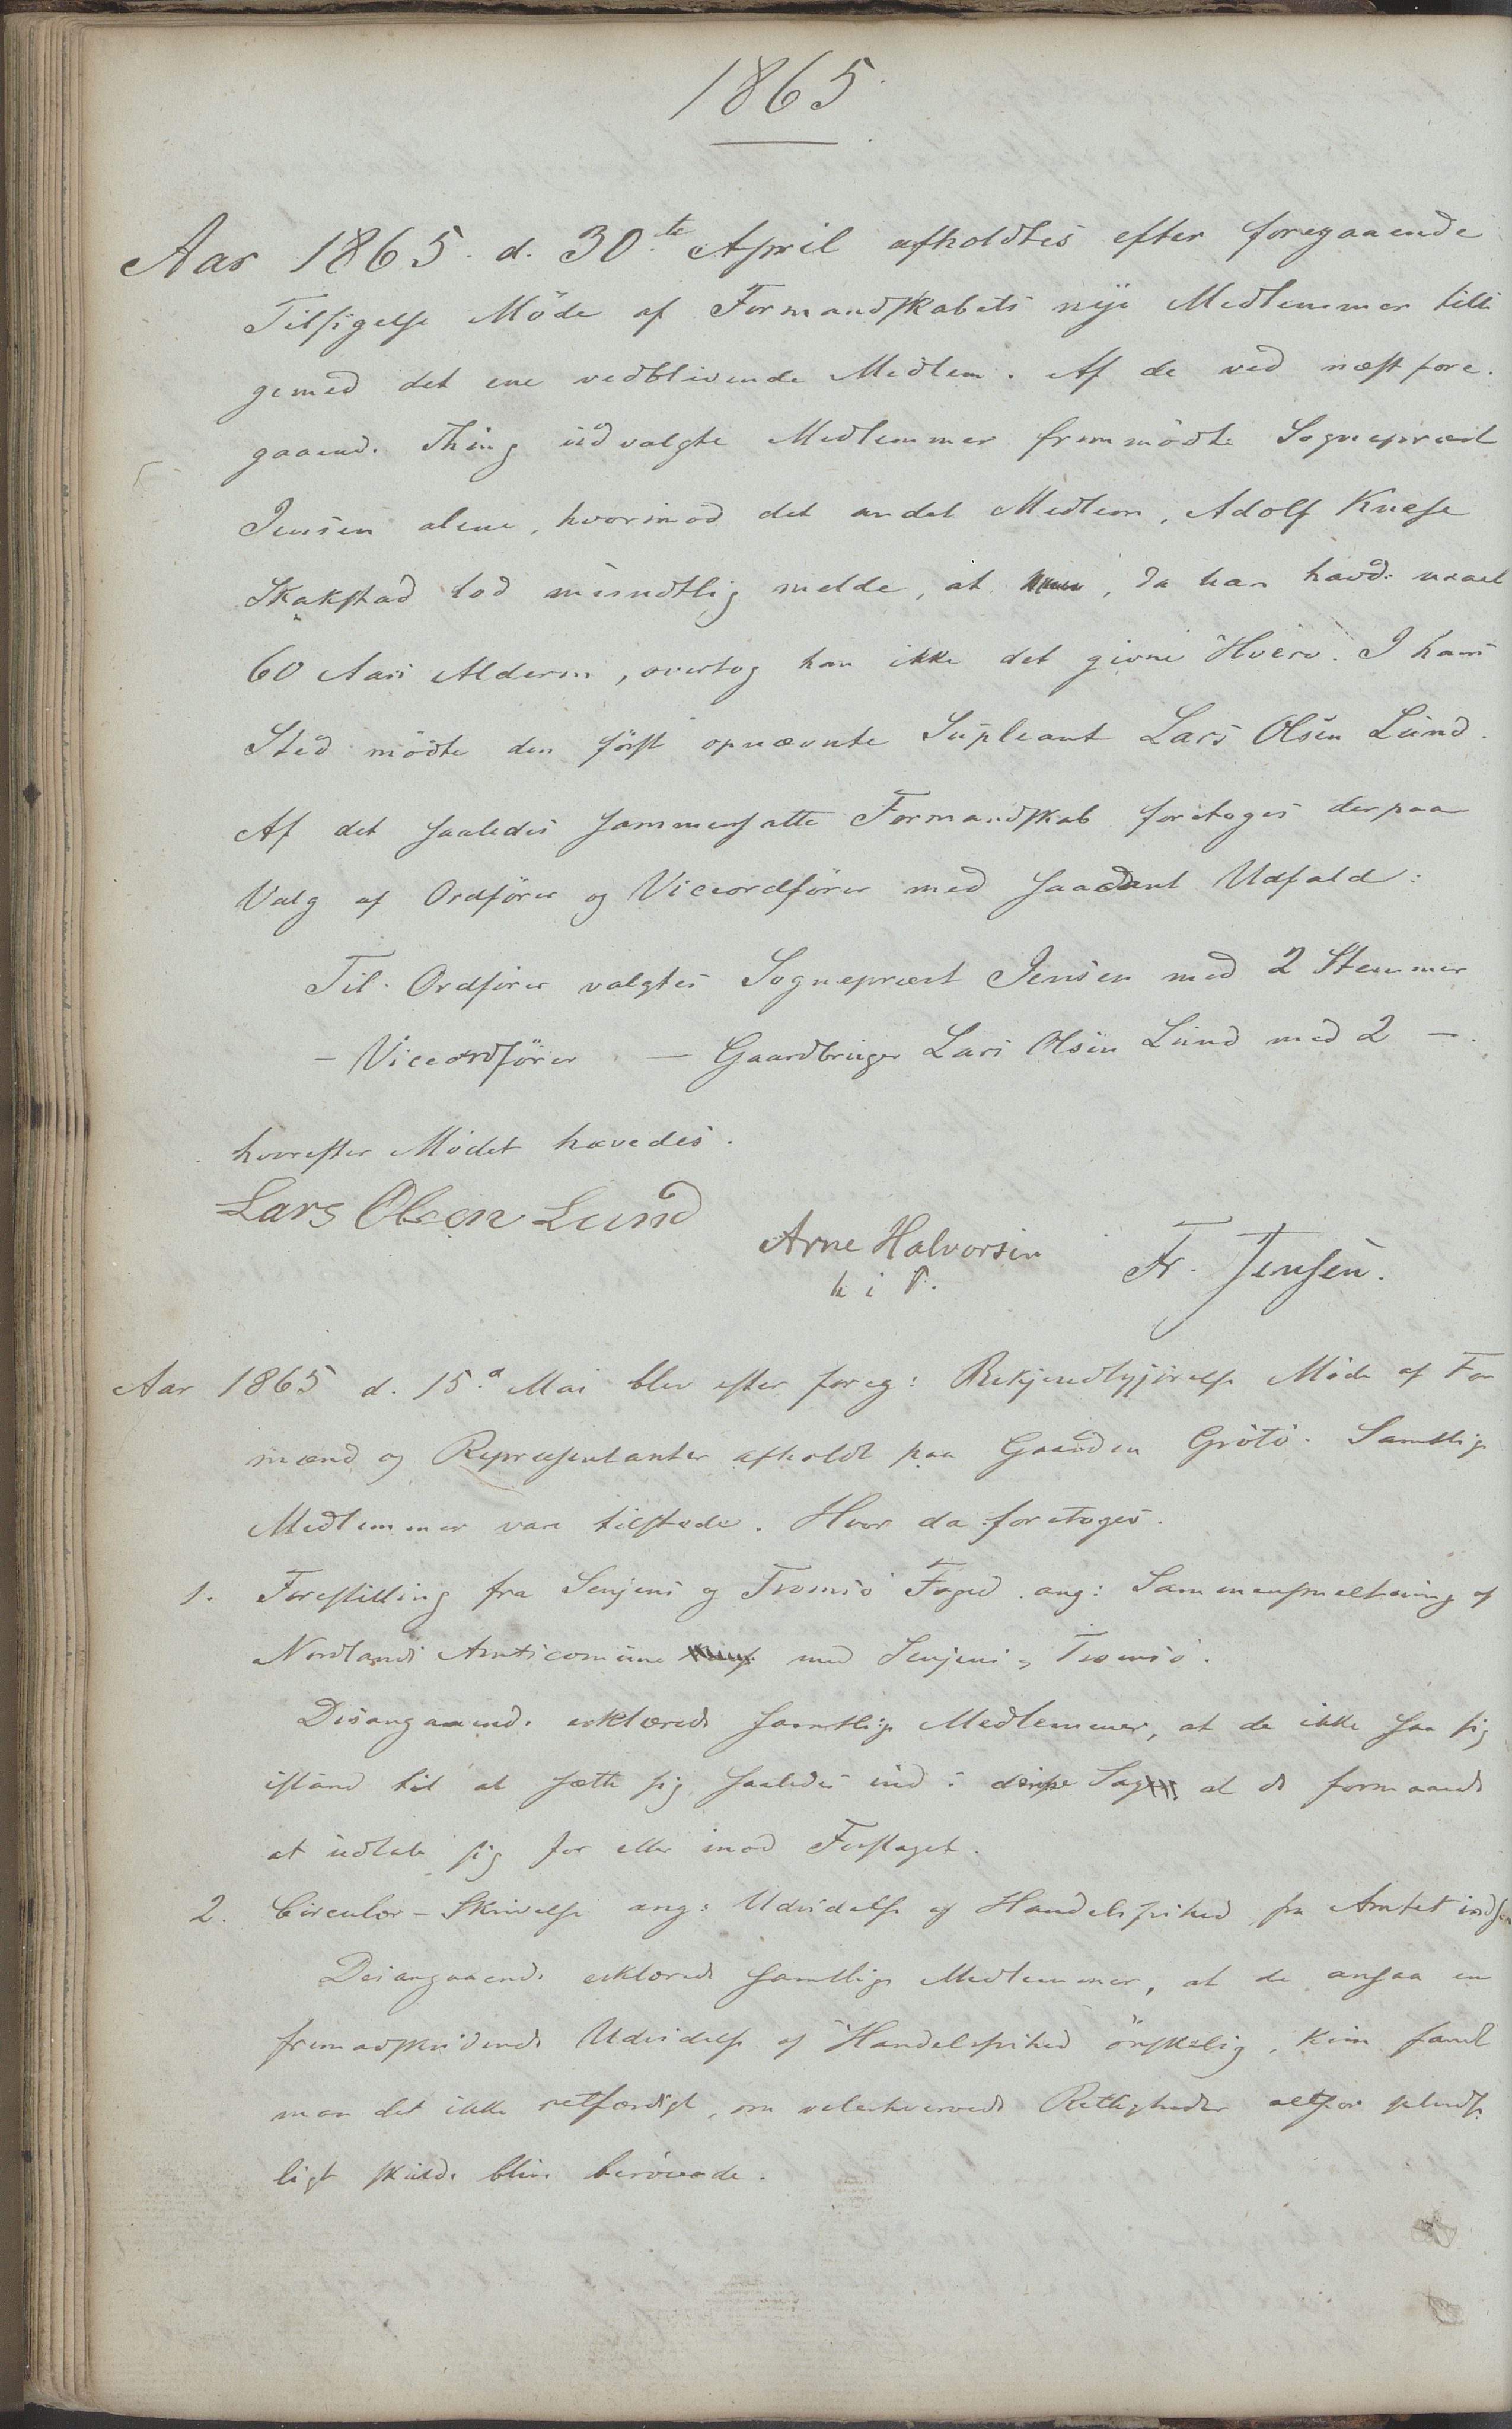 1865.
Aar 1865. d. 30te April afholdtes efter foregaaende
Tilsigelse Möde af Formandskabets nye Medlemmer tilli
gemed det ene vedblivende Medlem. Af de ved næst fore-
gaaende Thing udvalgte Medlemmer fremmödte Sognepræst
Jensen alene, hvorimod det andet Medlem, Adolf
Skakstad lod mundtlig melde, at, da han havde naaet
60 Aars Alderen, overtog han ikke det givne Hverv. I hans
Sted mödte den först opnævnte Supleant Lars Olsen Lund.
Af det saaledes sammensatte Formandskab foretoges derpaa
Valg af Ordförer og Viceordförer med saadant Udfald:
Til Ordförer valgtes Sognepræst Jensen med 2 Stemmer
- Viceordförer - Gaardbruger Lars Olsen Lund med 2 -.
hvorefter Mödet hævedes.
Lars Olsen Lund
Arne Halvorsen Fr. Jensen.
Aar 1865 d. 15d Mai blev efter foreg: Bekjendtgjörelse Möde af For
mænd og Repræsentanter afholdt paa Gaarden Grötö. Samtlige
Medlemmer vare tilstede. Hvor da foretoges.
1. Forestilling fra Senjens og Tromsö Foged ang: Sammensmeltning af
Nordlands Amtscomune med Senjens og Tromsö.
Desangaaende erklærede samtlige Medlemmer, at de ikke saa sig
istand til at sætte sig saaledes ind i denne Sag at de formaaede
at udtale sig for eller imod Forslaget.
2. Circulær-Skrivelse ang: Udvidelse af Handelsfrihed fra Amtet
Desangaaende erklærede samtlige Medlemmer, at de ansaa en
fremadskridende Udvidelse af Handelsfrihed önskelig, kun fandt
man det ikke retfærdigt, om velerhvervede Rettigheder altfor pludse
ligt skulde blive berövede.